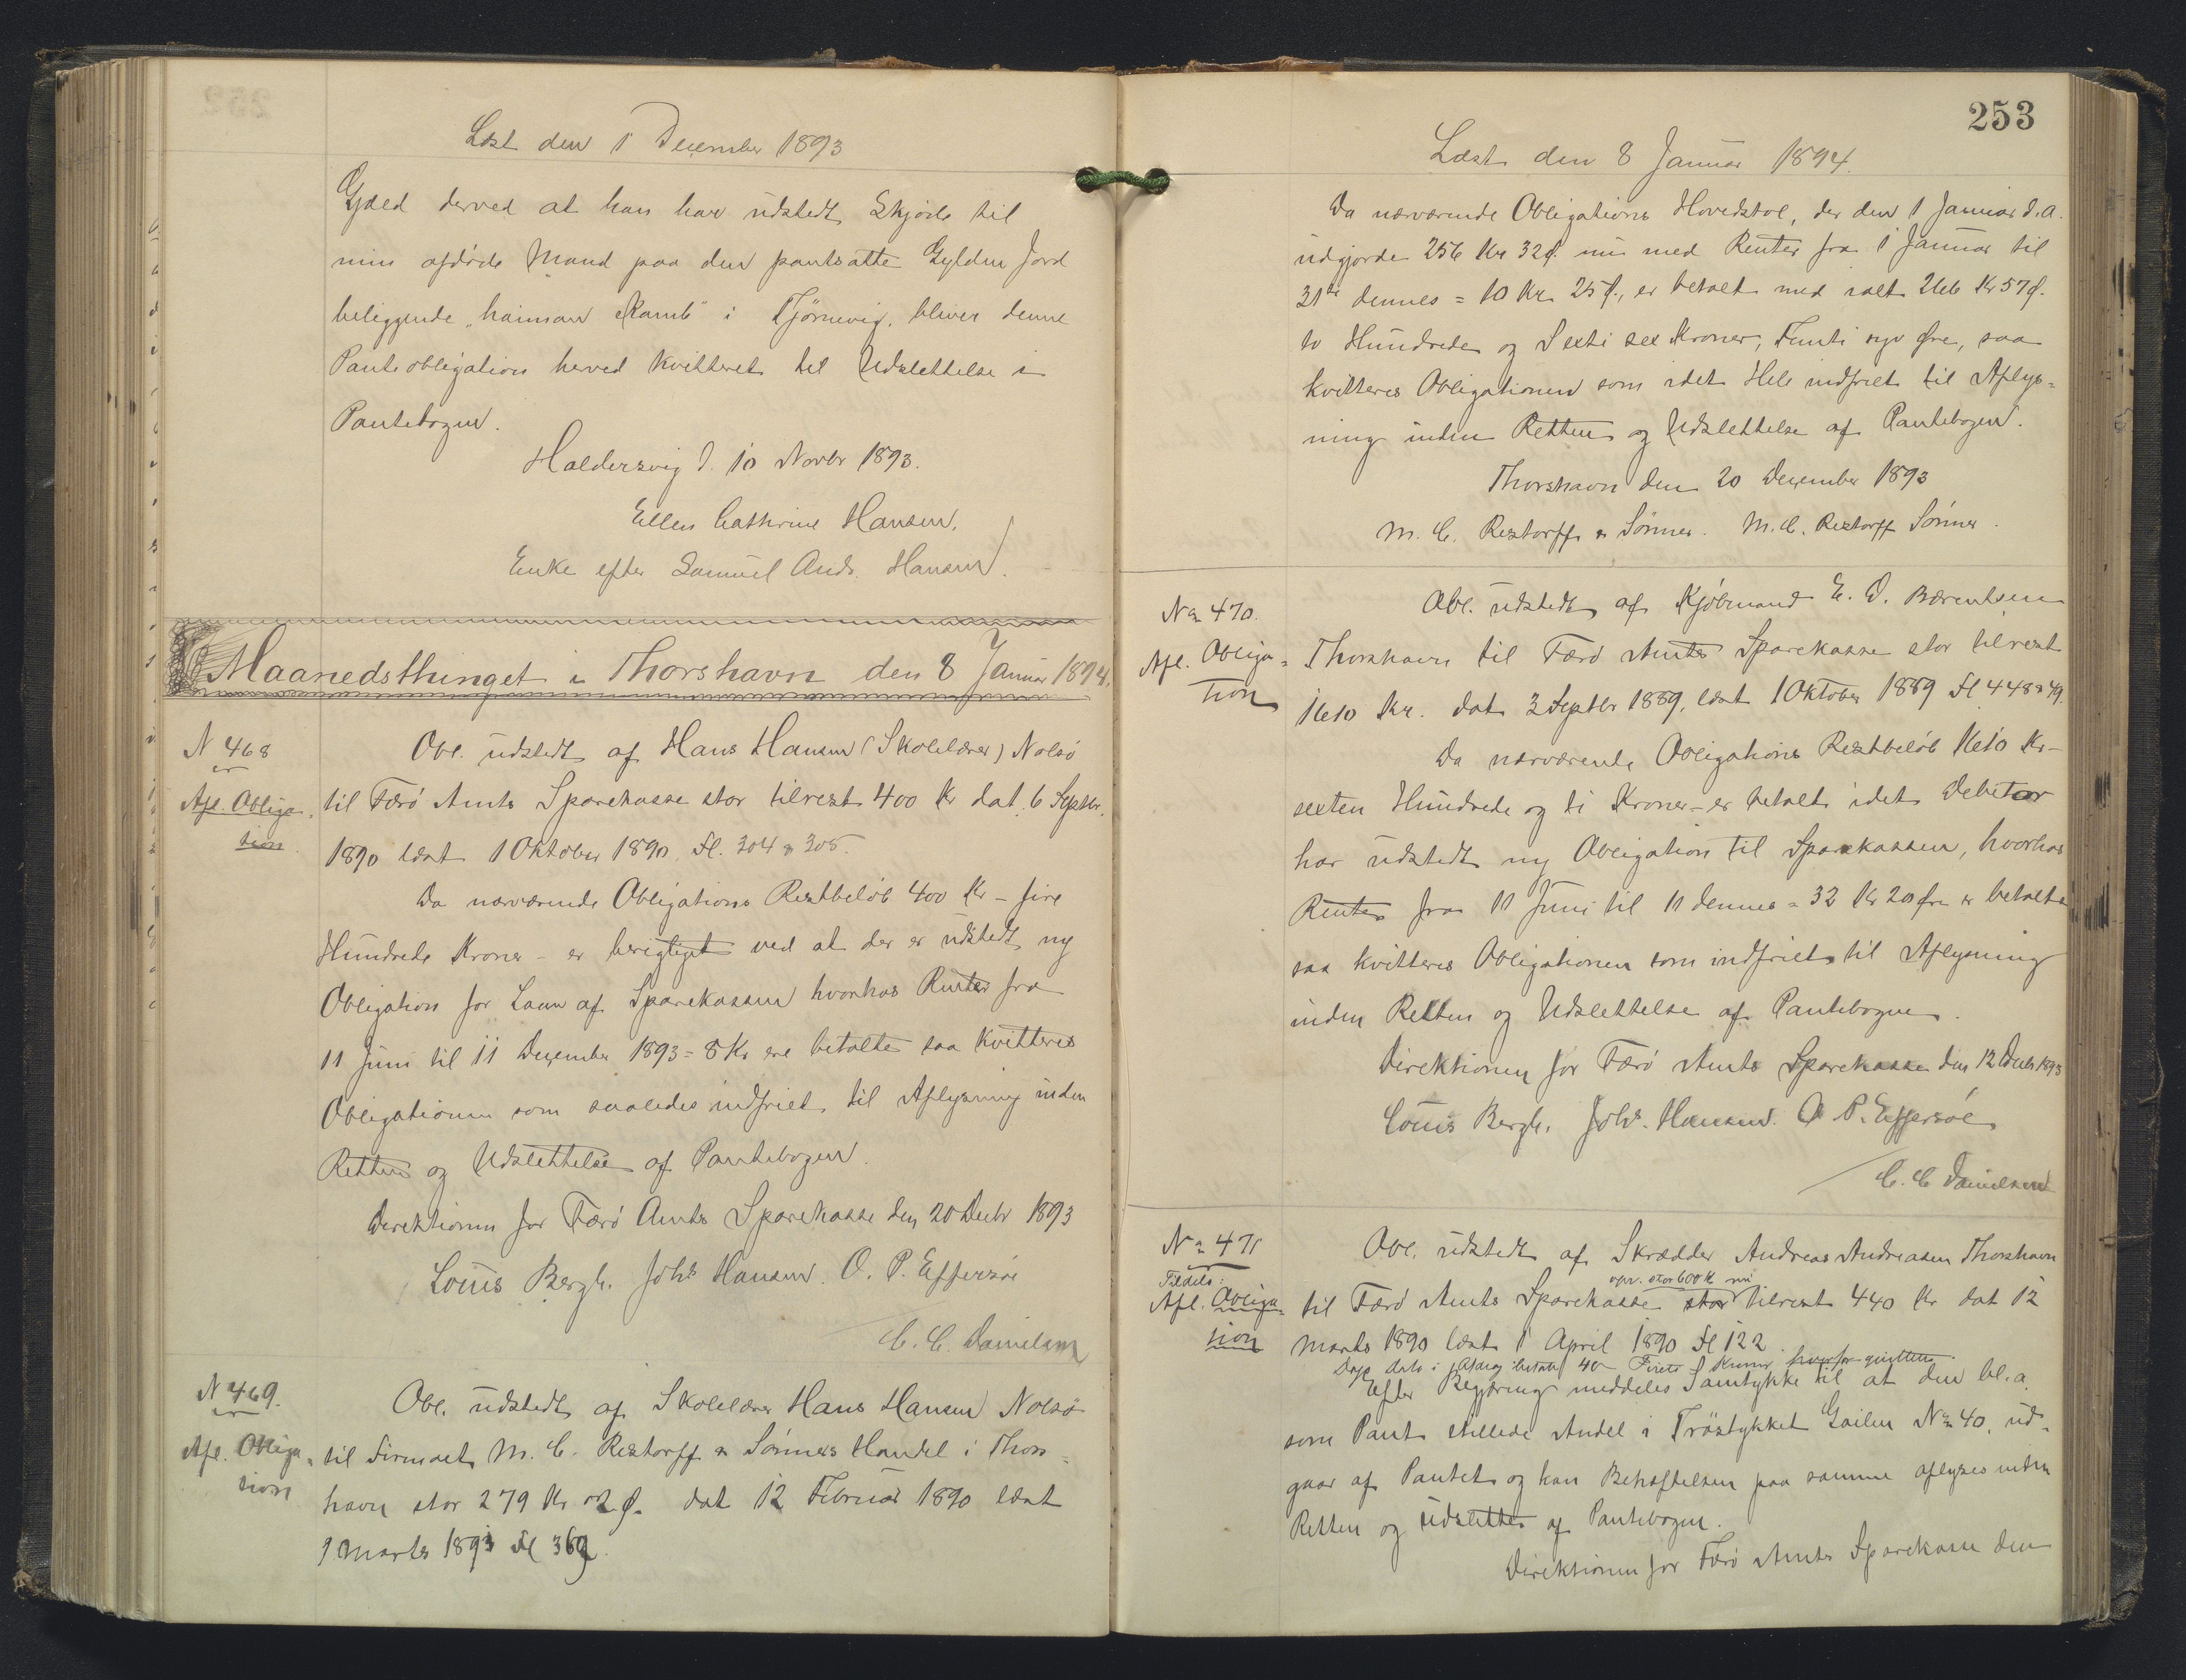 Læst den 1 December 1893
Gjæld derved at han har udstedt Skjöde til
min afdöde Mand paa den pantsatte Gylden Jord
beliggende „haiman Kamb" i Tjörnevig, bliver denne
Panteobligation herved kvitteret til Udslettelse i
Pantebogen.
Haldersvig d. 10 Novbr 1893.
Ellen Cathrine Hansen.
Enke efter Samuel Andr. Hansen.
Maanedsthinget i Thorshavn den 8 Januar 1894.
N 468
Afl. Obliga-
tion
Obl. udstedt af Hans Hansen (Skolelærer) Nolsö
til Færö Amts Sparekasse stor tilrest 400 Kr dat. 6 Septbr.
1890 læst 1 Oktober 1890, Fl. 304 & 305.
Da nærværende Obligations Restbelöb 400 Kr – fire
Hundrede Kroner – er berigtiget ved at der er udstedt ny
Obligation for Laan af Sparekassen hvorhos Renter fra
11 Juni til 11 December 1893 = 8 Kr ere betalte saa kvitteres
Obligationen som saaledes indfriet til Aflysning inden
Retten og Udslettelse af Pantebogen.
Direktionen for Færö Amts Sparekasse den 20 Decbr 1893
Louis Bergh. Johs Hansen. O. P. Effersöe
C. C. Danielsen
N 469.
Afl. Obliga-
tion
Obl. udstedt af Skolelærer Hans Hansen Nolsö
til Firmaet M. C. Restorff & Sönners Handel i Thors-
havn stor 279 Kr 02 Ø. dat 12 Februar 1890 læst
9 Marts 1893 Fl 369.
253
Læst den 8 Januar 1894.
Da nærværende Obligations Hovedstol, der den 1 Januar d.A.
udgjorde 256 Kr 32 Ø. nu med Renter fra 1 Januar til
31te dennes = 10 Kr 25 Ø., er betalt med ialt 266 Kr 57 Ø.
to Hundrede og Sexti sex Kroner, Femti syv Øre, saa
kvitteres Obligationen som idet Hele indfriet til Aflys-
ning inden Retten og Udslettelse af Pantebogen.
Thorshavn den 20 December 1893
M. C. Restorff & Sönner. M. C. Restorff Sönner.
No 470.
Afl. Obliga-
tion
Obl. udstedt af Kjöbmand E. D. Bærentsen
Thorshavn til Færö Amts Sparekasse stor tilrest
1610 Kr. dat 3 Septbr 1889, læst 1 Oktober 1889 Fl 448 & 49.
Da nærværende Obligations Restbelöb 1610 Kr –
sexten Hundrede og ti Kroner – er betalt idet Debitor
har udstedt ny Obligation til Sparekassen, hvorhos
Renter fra 11 Juni til 11 dennes = 32 Kr 20 Øre er betalte
saa kvitteres Obligationen som indfriet til Aflysning
inden Retten og Udslettelse af Pantebogen.
Direktionen for Færö Amts Sparekasse den 12 Decbr 1893
Louis Bergh. Johs. Hansen. O P. Effersöe
C. C. Danielsen
No 471
Tildels:
Afl. Obliga-
tion
Obl. udstedt af Skrædder Andreas Andreasen Thorshavn
opr. stor 600 K nu
til Færö Amts Sparekasse stor tilrest 440 Kr dat 12
Marts 1890 læst 1 April 1890 Fl 122.
Dags dato i Afdrag betalt 40 Firti Kroner hvorfor quitteres.
Efter Begjæring meddeles Samtykke til at den bl.a.
som Pant stillede Andel i Tröstykket Gailen No 40, ud-
gaar af Pantet og kan Behæftelsen paa samme aflyses inden
Retten og udslettes af Pantebogen.
Direktionen for Færö Amts Sparekasse den